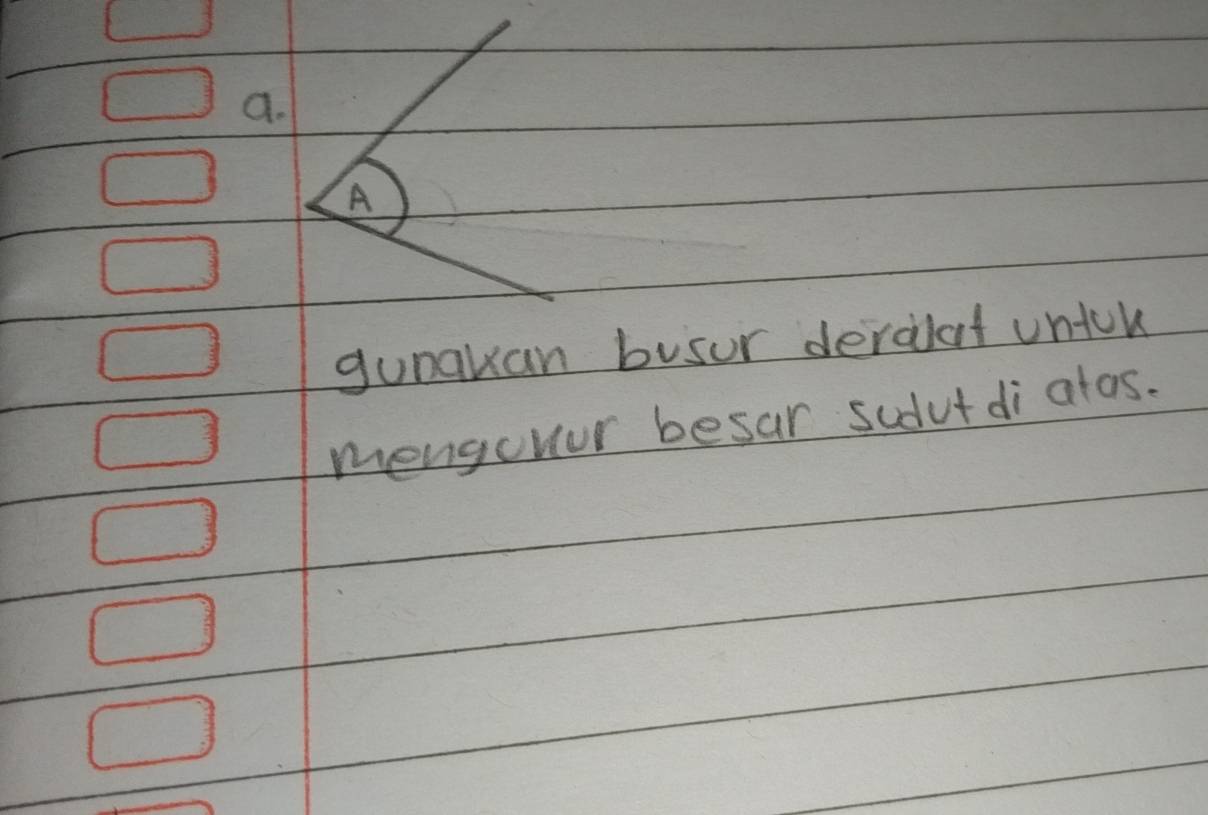 a.
A
gunakan busur derajat untuk
mengukur besar sudut di atas.